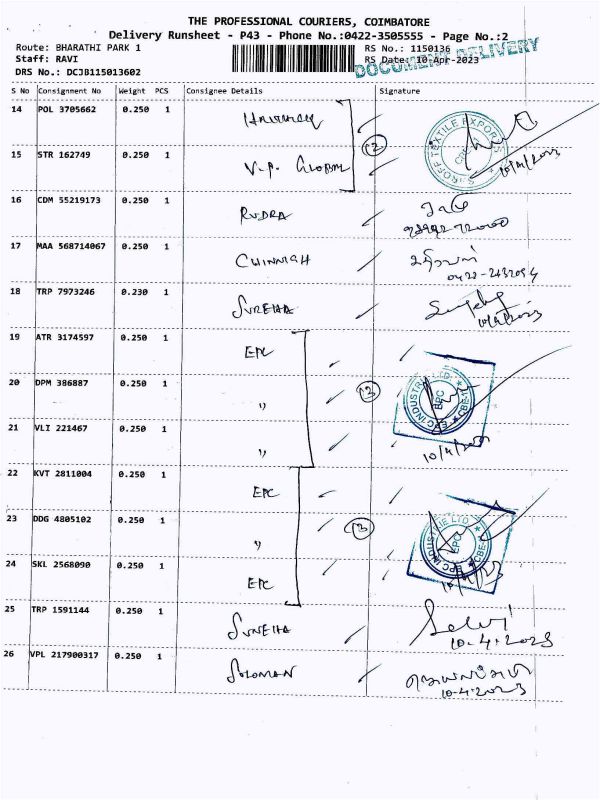 THE PROFESSIONAL COURIERS, COIMBATORE
Delivery Runsheet - P43 - Phone No.:0422-3505555 - Page No.:2
Route: BHARATHI PARK 1 RS No.: 1150136
Staff: RAVI RS Date: 10-Apr-2023
DOCUMENT DELIVERY
DRS No.: DCJB115013602
S No Consignment No Weight PCS Consignee Details Signature
14 POL 3705662 0.250 1
15 STR 162749 0.250 1 V.P. GLOBAL
(2)
TEXTILE EXPORTS
10/4/2023
16 CDM 55219173 0.250 1 RUDRA
17 MAA 568714067 0.250 1 CHINNIAH
18 TRP 7973246 0.230 1 SUREKHA
10/4/2023
19 ATR 3174597 0.250 1 EPC
20 DPM 386887 0.250 1 ,,
(3)
EPC INDUSTRIE LTD. * CBE-4 *
EPC
21 VLI 221467 0.250 1 ,,
10/4/2023
22 KVT 2811004 0.250 1 EPC
23 DDG 4805102 0.250 1 ,,
(3)
EPC INDUSTRIE LTD. * CBE-4 *
EPC
24 SKL 2568090 0.250 1 EPC
10/4/23
25 TRP 1591144 0.250 1 SUNEHA Selvi
10-4-2023
26 VPL 217900317 0.250 1 SOLOMAN
10-4-2023